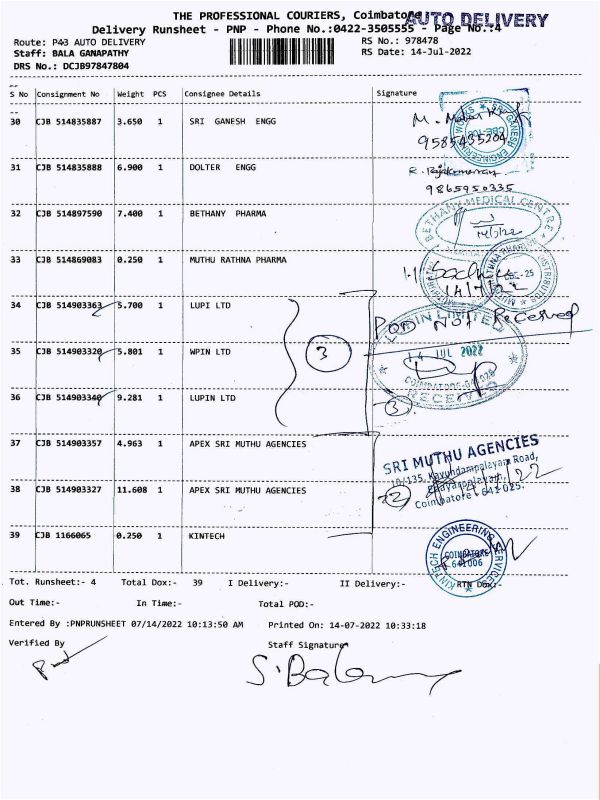 THE PROFESSIONAL COURIERS, Coimbatore
AUTO DELIVERY
Delivery Runsheet - PNP - Phone No.:0422-3505555 - Page No.:4
Route: P43 AUTO DELIVERY RS No.: 978478
Staff: BALA GANAPATHY RS Date: 14-Jul-2022
DRS No.: DCJB97847804
S No Consignment No Weight PCS Consignee Details Signature
30 CJB 514835887 3.650 1 SRI GANESH ENGG
9585435204
31 CJB 514835888 6.900 1 DOLTER ENGG
9865950335
32 CJB 514897590 7.400 1 BETHANY PHARMA
BETHANY MEDICAL CENTRE
33 CJB 514869083 0.250 1 MUTHU RATHNA PHARMA
34 CJB 514903363 5.700 1 LUPI LTD
POD NOT Received
LUPIN LIMITED
35 CJB 514903320 5.801 1 WPIN LTD
3
14 JUL 2022
RECEIVED
36 CJB 514903340 9.281 1 LUPIN LTD
3
37 CJB 514903357 4.963 1 APEX SRI MUTHU AGENCIES
SRI MUTHU AGENCIES
10/135, Kavundampalayam Road,
38 CJB 514903327 11.608 1 APEX SRI MUTHU AGENCIES
2
Coimbatore - 641 025.
39 CJB 1166065 0.250 1 KINTECH
KINTECH ENGINEERING SERVICES
COIMBATORE
641 006
Tot. Runsheet:- 4 Total Dox:- 39 I Delivery:- II Delivery:- RTN Dox:-
Out Time:- In Time:- Total POD:-
Entered By :PNPRUNSHEET 07/14/2022 10:13:50 AM Printed On: 14-07-2022 10:33:18
Verified By Staff Signature
S.Bala